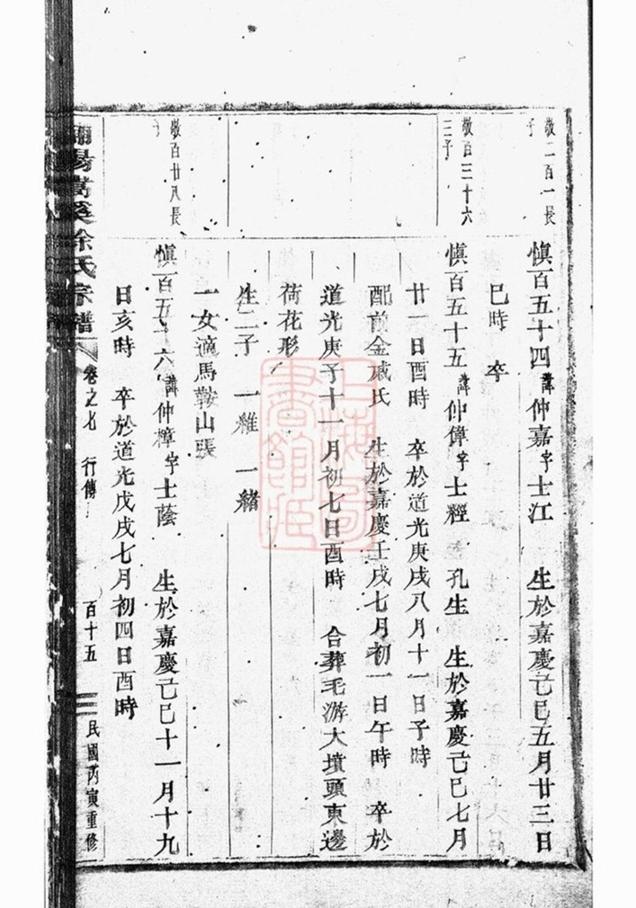 敬二百一長子
慎百五十四諱仲嘉字士江 生於嘉慶己巳五月廿三日
巳時 卒
敬百三十六三子
慎百五十五諱仲偉字士經 孔生 生於嘉慶己巳七月
廿一日酉時 卒於道光庚戌八月十一日子時
配前金戚氏 生於嘉慶壬戌七月初一日午時 卒於
道光庚子十一月初七日酉時 合葬毛游大墳頭東邊
荷花形
生二子 一雒 一緒
一女適馬鞍山張
敬百廿八長子
慎百五十六諱仲樟字士蔭 生於嘉慶己巳十一月十九
日亥時 卒於道光戊戌七月初四日酉時
陽嵩溪徐氏宗譜 卷之七 行傳 百十五 民國丙寅重修
上海圖書館藏